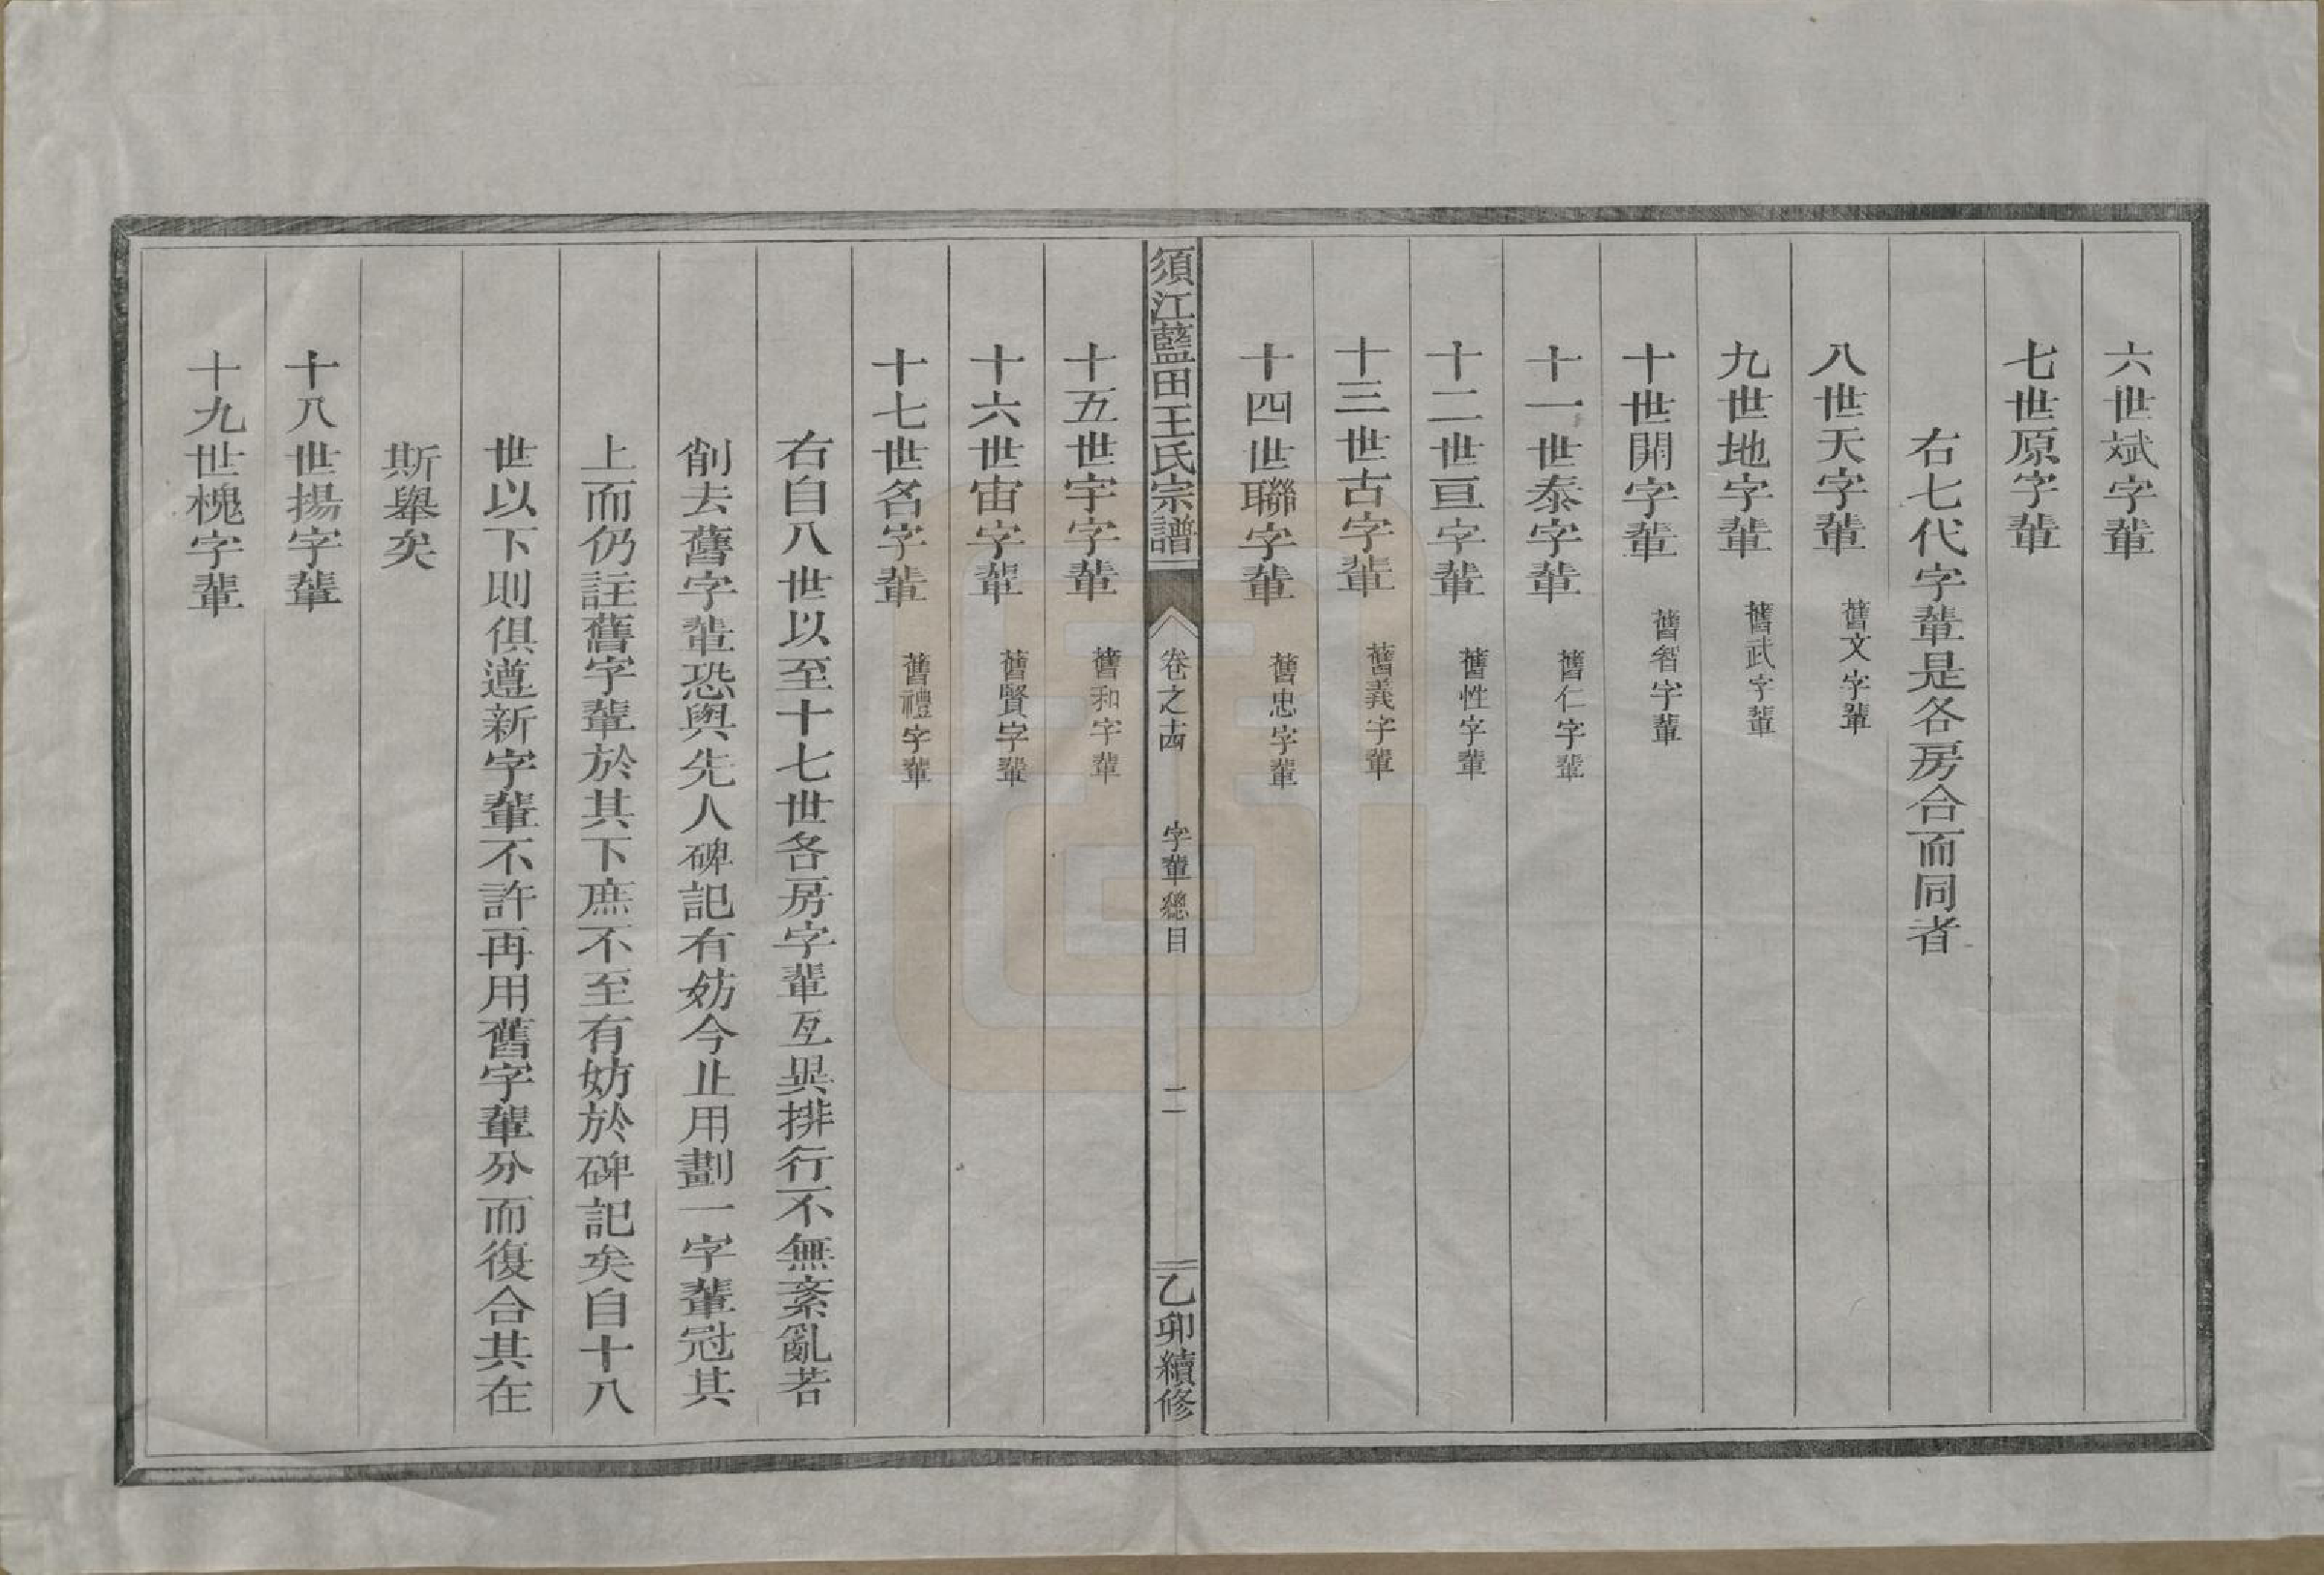 六世斌字軰
七世原字軰
右七代字軰是各房合而同者
八世天字軰 舊文字軰
九世地字軰 舊武字軰
十世開字軰 舊智字軰
十一世泰字軰 舊仁字軰
十二世亘字軰 舊性字軰
十三世古字軰 舊義字軰
十四世聯字軰 舊忠字軰
須江藍田王氏宗譜 卷之十四 字軰總目 二 乙卯續修
十五世宇字軰 舊和字軰
十六世宙字軰 舊賢字軰
十七世名字軰 舊禮字軰
右自八世以至十七世各房字軰互異排行不無紊亂若
削去舊字軰恐與先人碑記有妨今止用劃一字軰冠其
上而仍註舊字軰於其下庶不至有妨於碑記矣自十八
世以下則俱遵新字軰不許再用舊字軰分而復合其在
斯舉矣
十八世揚字軰
十九世槐字軰